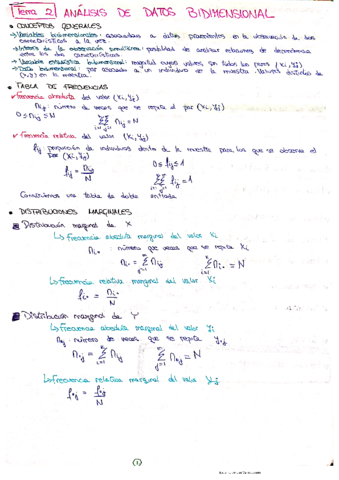 Tema 2 ANÁLISIS DE DATOS BIDIMENSIONAL
• CONCEPTOS GENERALES
→ Variables bidimensionales: asociadas a datos procedentes de la observación de dos
características a la vez
→ Interés de la observación simultánea: posibilidad de analizar relaciones de dependencia
entre las dos características
→ Variable estadística bidimensional: cuyos valores son todos los pares (xi, yj)
→ Dato bidimensional: par asociado a un individuo de la muestra. Valores distintos de
(x,y) en la muestra.
• TABLA DE FRECUENCIAS
✓ Frecuencia absoluta del valor (xi, yj)
nij: número de veces que se repite el par (xi, yj)
0 ≤ nij ≤ N ΣΣ nij = N
✓ Frecuencia relativa del valor (xi, yj)
fij proporción de individuos dentro de la muestra para los que se observa el
par (xi, yj)
fij = nij / N
0 ≤ fij ≤ 1
ΣΣ fij = 1
Construimos una tabla de doble entrada
• DISTRIBUCIONES MARGINALES
Distribución marginal de X
↳ Frecuencia absoluta marginal del valor xi
ni• número de veces que se repite xi
ni• = Σ nij Σ ni• = N
↳ Frecuencia relativa marginal del valor xi
fi• = ni• / N
Distribución marginal de Y
↳ Frecuencia absoluta marginal del valor yj
n•j: número de veces que se repite yj
n•j = Σ nij Σ n•j = N
↳ Frecuencia relativa marginal del valor yj
f•j = f•j / N
(1)